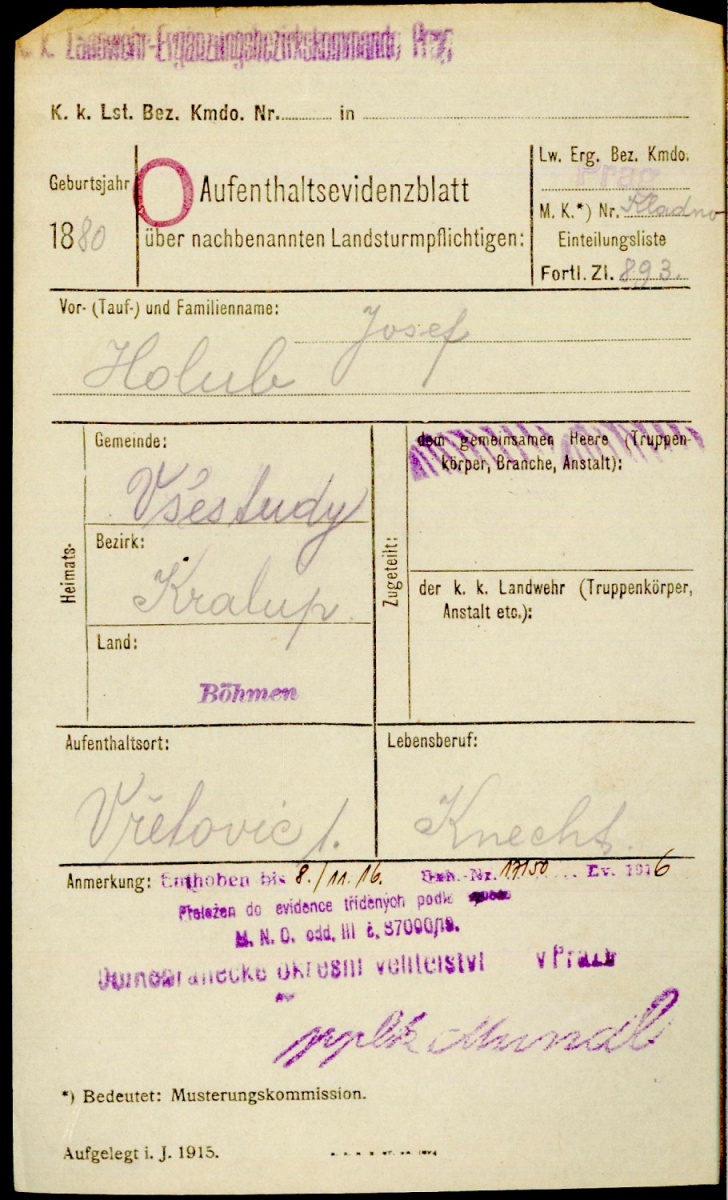 k. Landwehr-Ergänzungsbezirkskommando Prag
K. k. Lst. Bez. Kmdo. Nr. in
Geburtsjahr
1880
Aufenthaltsevidenzblatt
über nachbenannten Landsturmpflichtigen:
Lw. Erg. Bez. Kmdo.
Prag
M. K.*) Nr. Kladno
Einteilungsliste
Fortl. Zl. 893.
Vor- (Tauf-) und Familienname:
Josef
Holub
Heimats-
Gemeinde:
Všestudy
Bezirk:
Kralup
Land:
Böhmen
Zugeteilt:
dem gemeinsamen Heere (Truppen-
körper, Branche, Anstalt):
der k. k. Landwehr (Truppenkörper,
Anstalt etc.):
Aufenthaltsort:
Vřetovic
Lebensberuf:
Knecht.
Anmerkung: Enthoben bis 8./11.16. Nr. 17150 Ev. 1916
Přeložen do evidence tříděných podle
M. N. O. odd. III č. 87000/19.
Domobranecké okresní velitelství v Praze
pplk
*) Bedeutet: Musterungskommission.
Aufgelegt i. J. 1915.